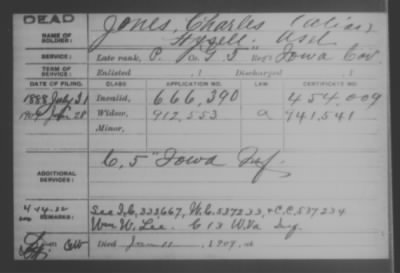 DEAD
Jones, Charles (alias)
NAME OF SOLDIER:
SERVICE: Late rank, P. Co. Reg't Iowa Cav.
TERM OF SERVICE: Enlisted , 1 Discharged , 1
DATE OF FILING. CLASS APPLICATION NO. LAW CERTIFICATE NO.
1888 July 31 Invalid, 666,390 454,009
Jan 28 Widow, 912,553 a 741,541
Minor,
C, 5" Iowa Inf.
ADDITIONAL SERVICES:
REMARKS: See I.C. 333,667, W.C. 537233, + C.C. 537234
Wm W. Lee. C 13 W.Va Inf.
Died Jan 11, 1909, at